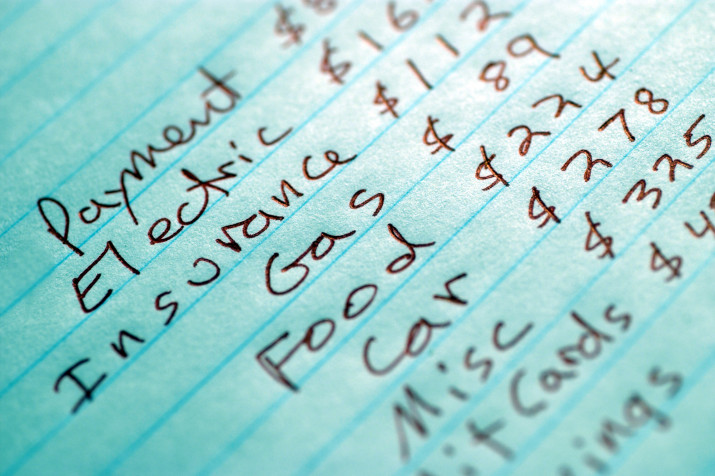 Payment $8
Electric $16
Insurance $112
Gas $89
Food $224
Car $278
Misc $325
it Cards $4
ings